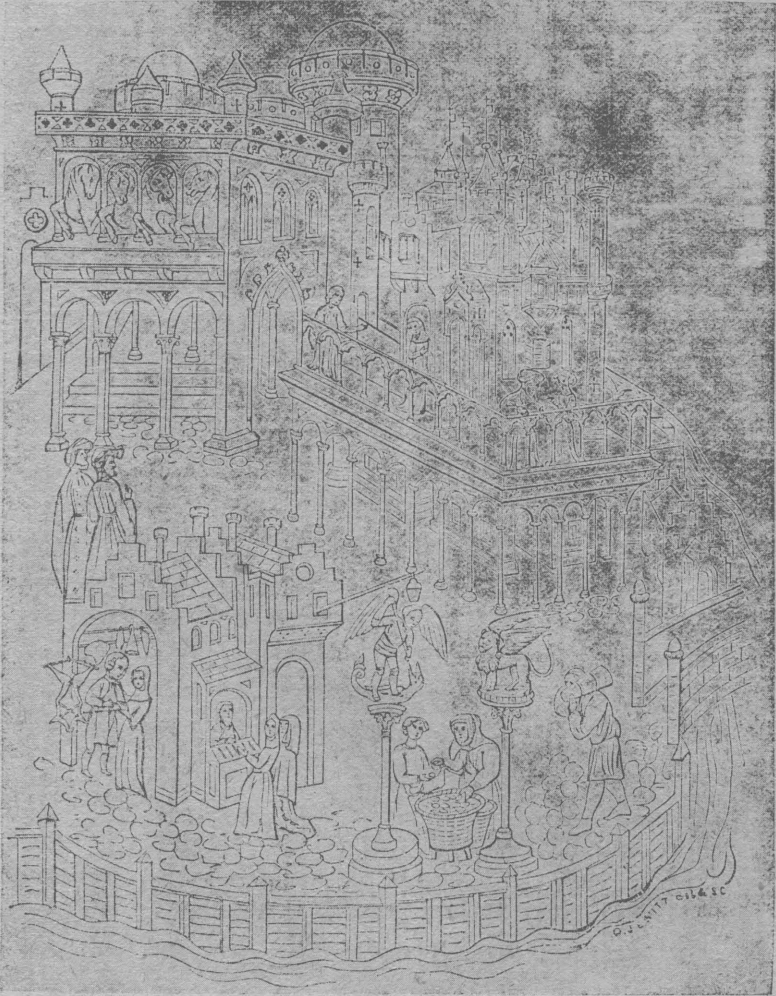 O. JEWITT DEL & SC